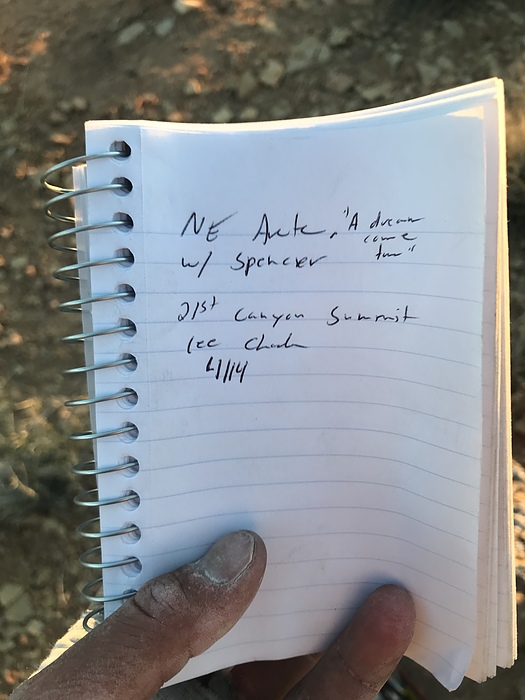 NE Arete, "A dream
come
true"
w/ Spencer
21st Canyon Summit
Lee
4/14